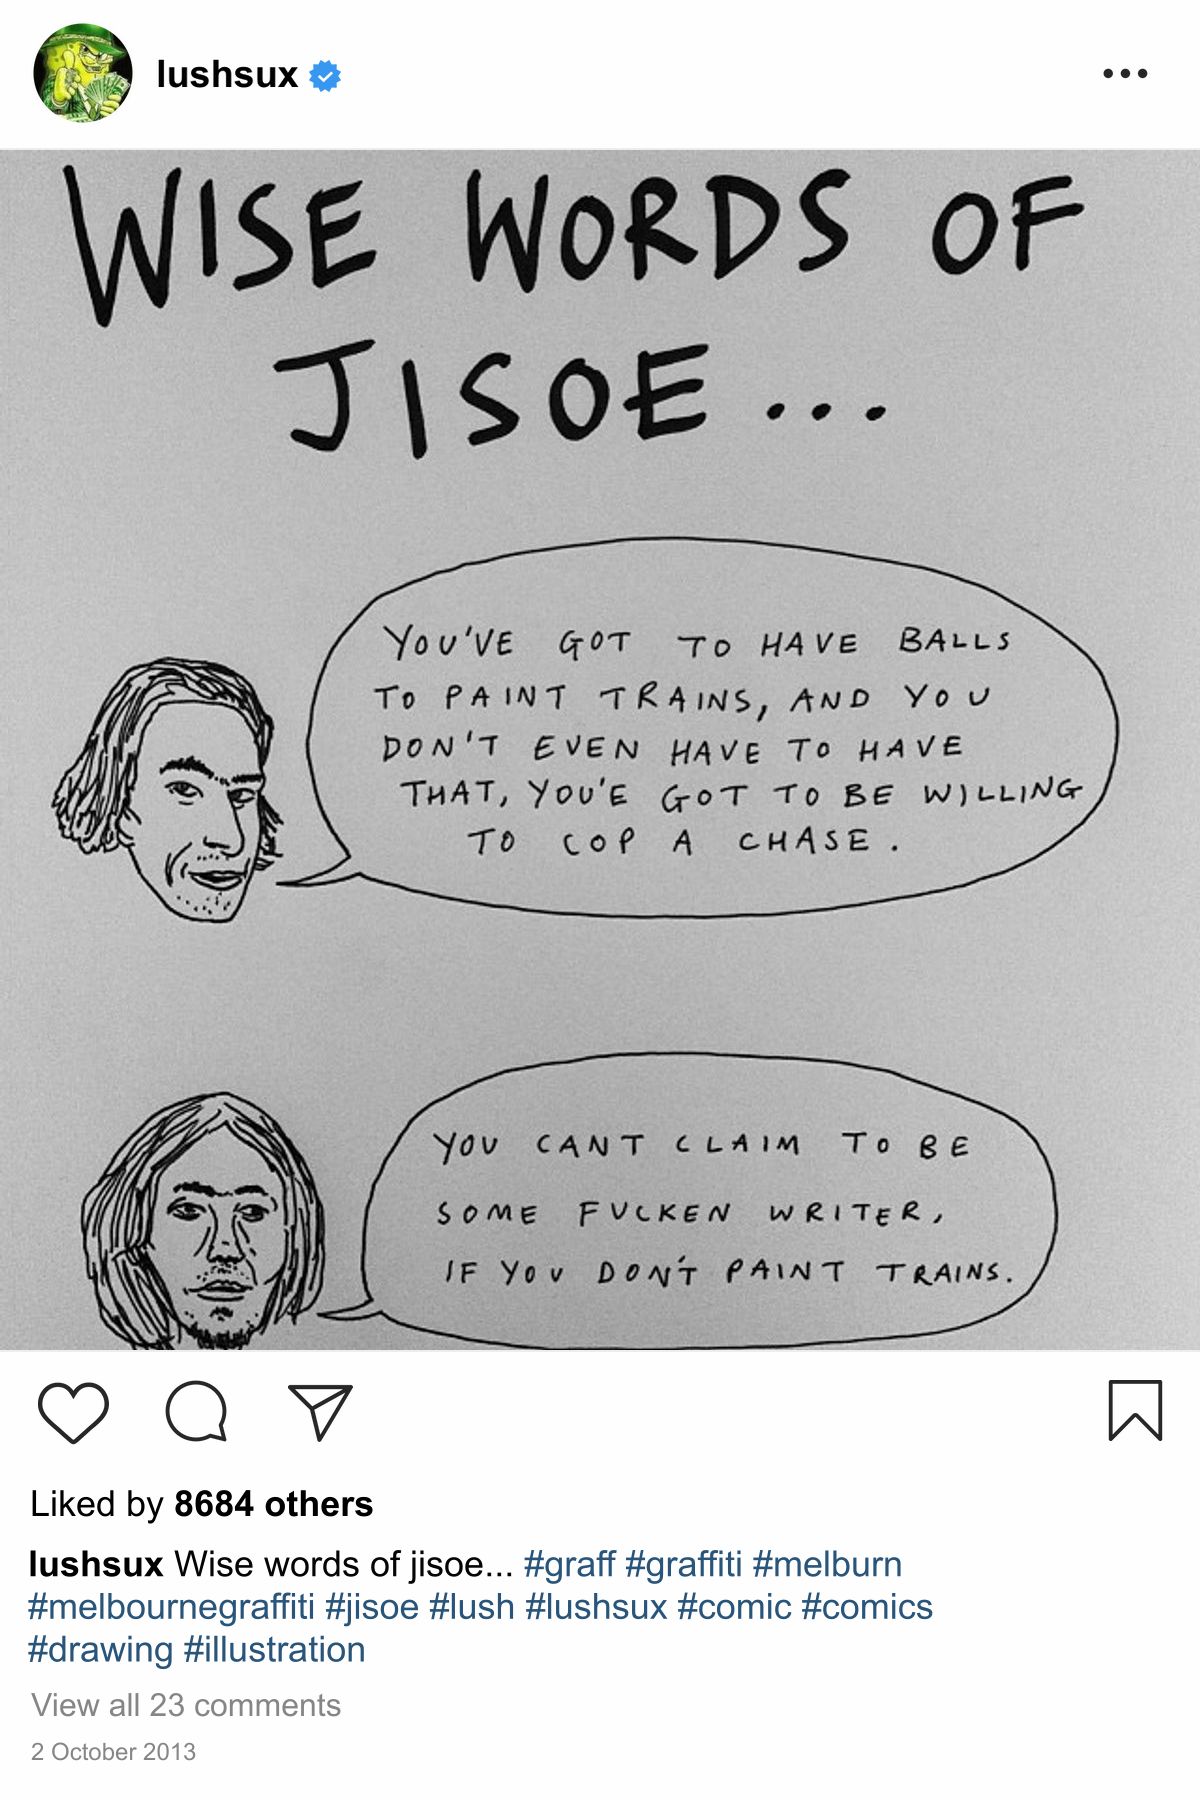 lushsux
WISE WORDS OF
JISOE...
YOU'VE GOT TO HAVE BALLS
TO PAINT TRAINS, AND YOU
DON'T EVEN HAVE TO HAVE
THAT, YOU'E GOT TO BE WILLING
TO COP A CHASE.
YOU CANT CLAIM TO BE
SOME FUCKEN WRITER,
IF YOU DON'T PAINT TRAINS.
Liked by 8684 others
lushsux Wise words of jisoe... #graff #graffiti #melburn
#melbournegraffiti #jisoe #lush #lushsux #comic #comics
#drawing #illustration
View all 23 comments
2 October 2013